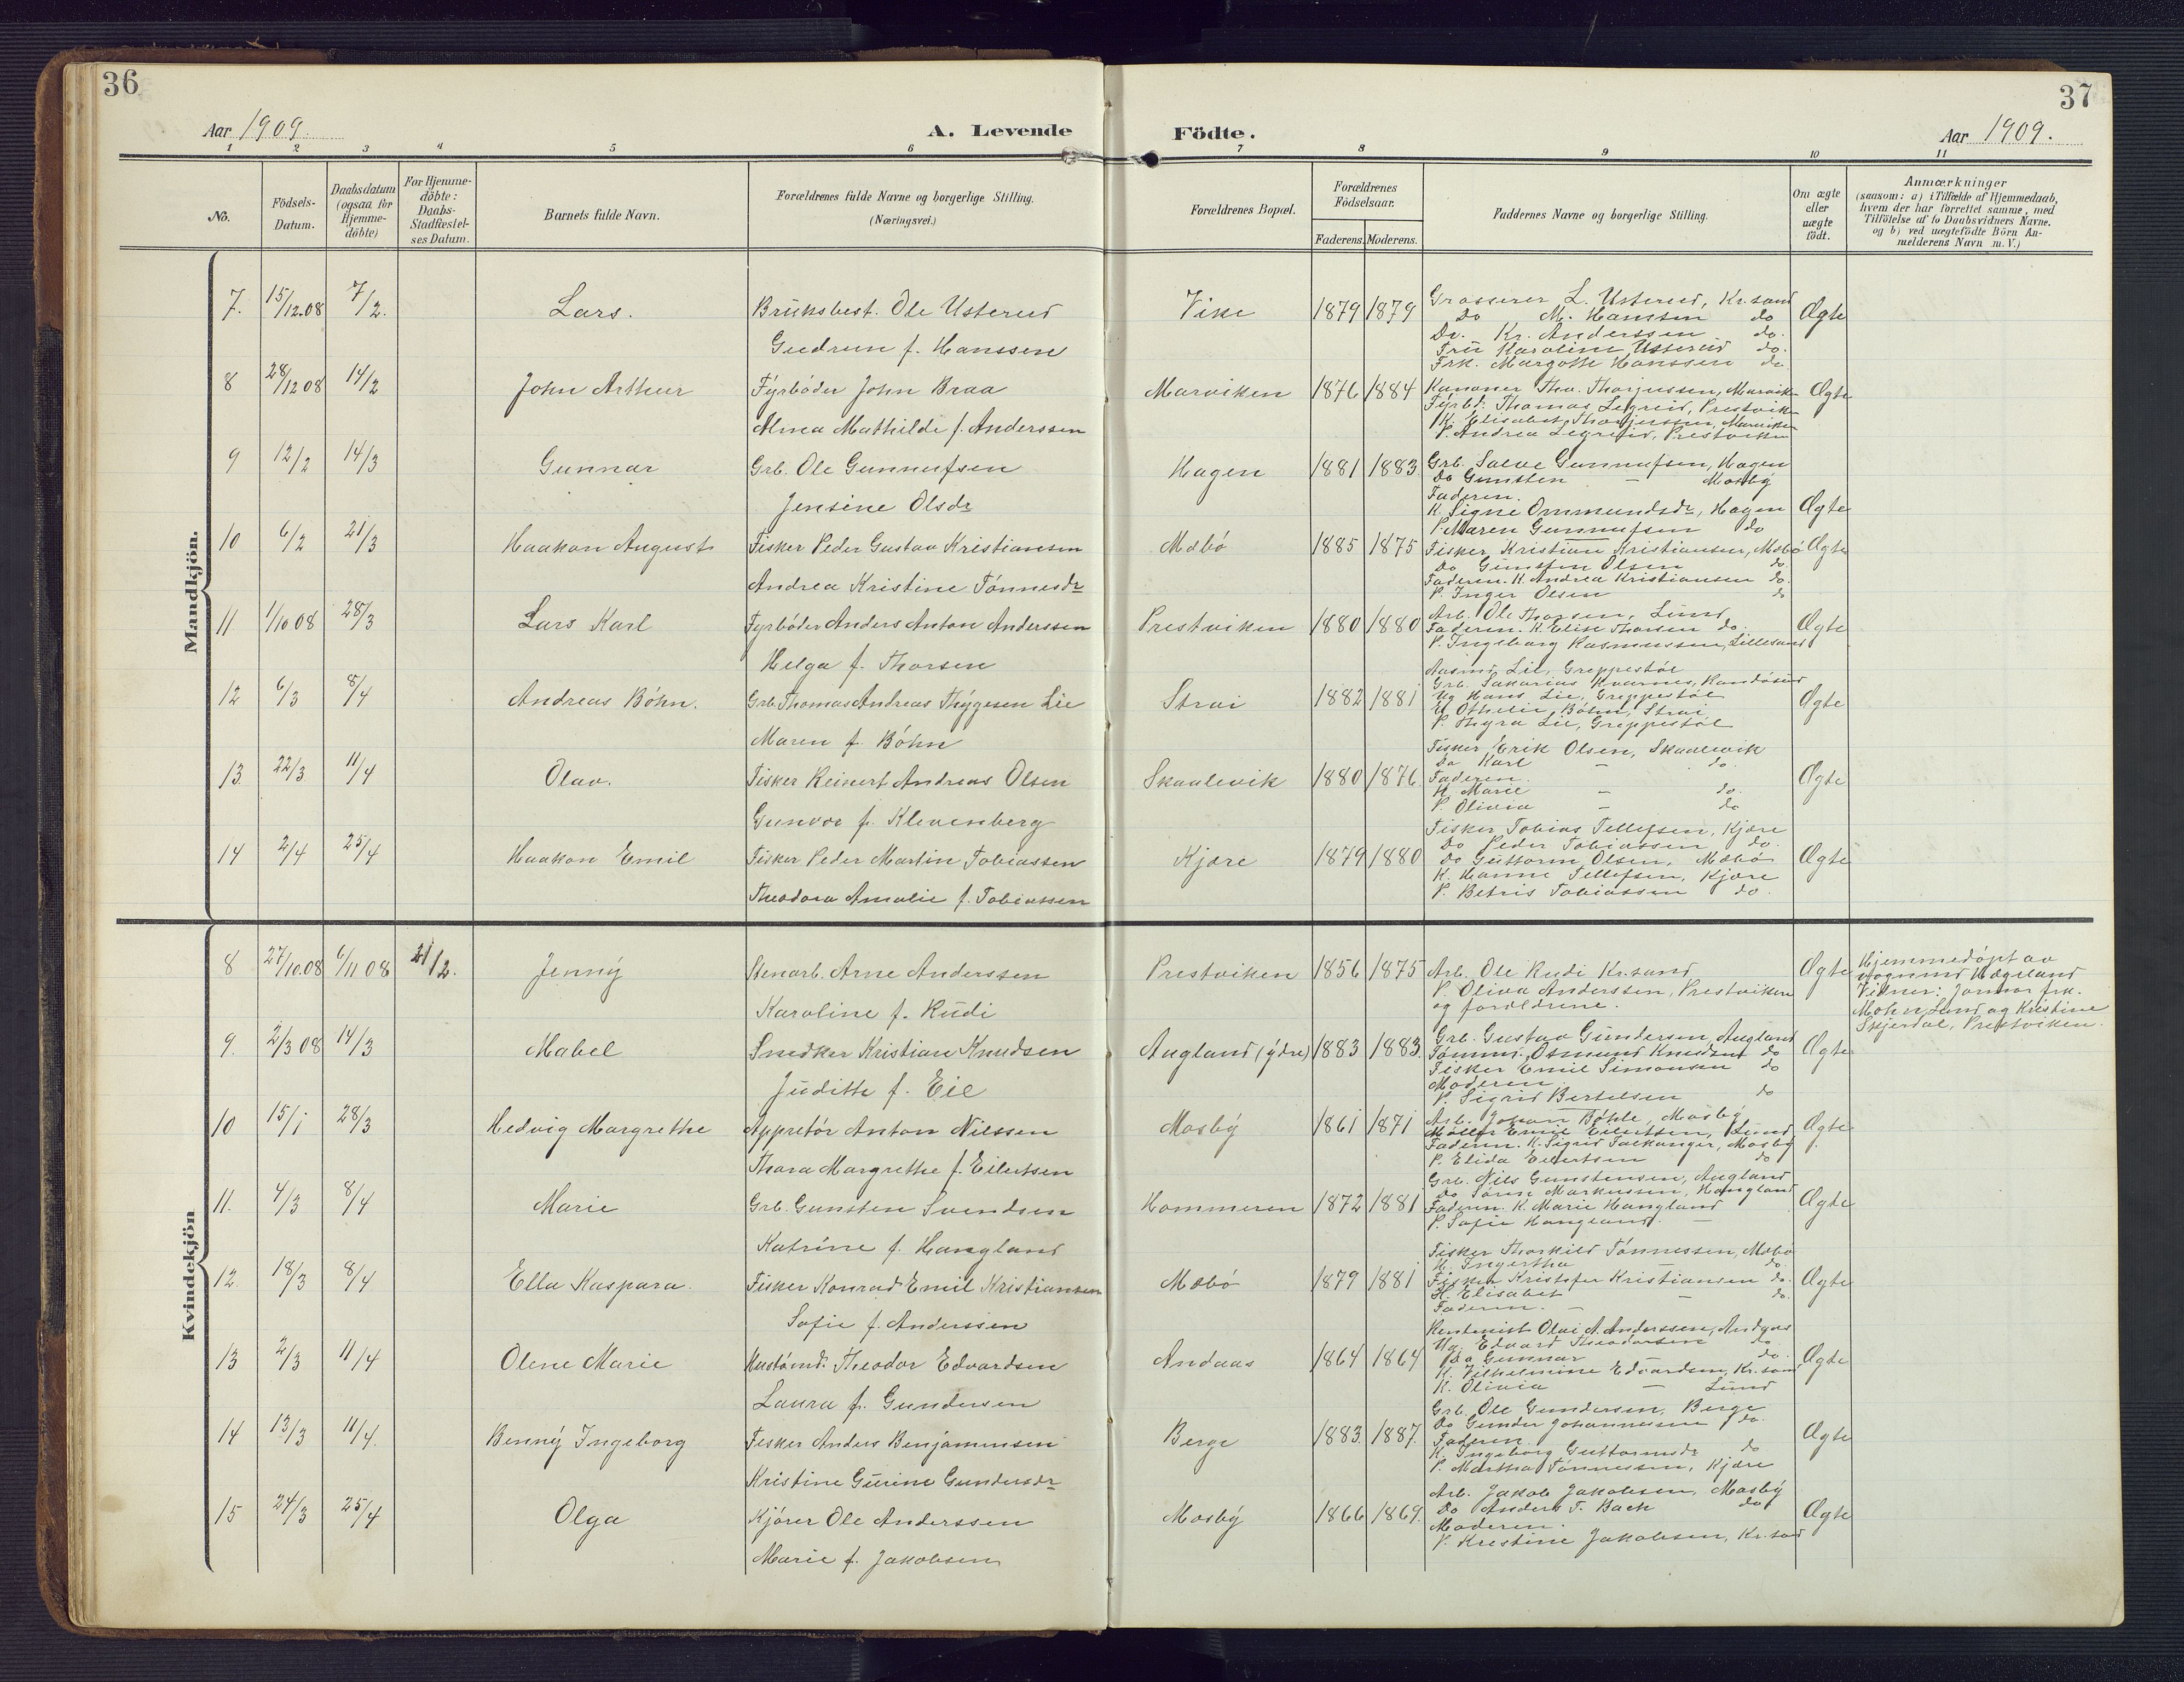 36
37
Aar 1909.
A. Levende Födte.
Aar 1909.
1 2 3 4 5 6 7 8 9 10 11
No.
Födsels-Datum.
Daabsdatum (ogsaa for Hjemme-döbte)
For Hjemme-döbte: Daabs-Stadfæstel-ses Datum.
Barnets fulde Navn.
Forældrenes fulde Navne og borgerlige Stilling. (Næringsvei.)
Forældrenes Bopæl.
Forældrenes Födselsaar.
Faderens. Moderens.
Faddernes Navne og borgerlige Stilling.
Om ægte eller uægte födt.
Anmærkninger
(saasom: a) i Tilfælde af Hjemmedaab, hvem der har forrettet samme, med Tilföielse af to Daabsvidners Navne. og b) ved uægtefödte Börn An-melderens Navn m. V.)
Mandkjön.
7. 15/12.08 7/2. Lars. Bruksbest. Ole Usterud Vike 1879 1879 Grosserer L. Usterud, Kr.sand Ægte
Do M. Hanssen do
Gudrun f. Hanssen
Do. Kr. Anderssen do.
Fru Karoline Usterud do.
Frk. Margothe Hanssen do.
8 28/12 08 14/2 John Arthur Fyrbøder John Braa Marviken 1876 1884 Tho. Thorjussen, Marvik Ægte
Fyrbd. Thomas Legreid, Prestvik
Alma Mathilde f. Anderssen
K. Elisabet Thorjussen, Marviken
P. Andrea Legreid, Prestviken
9 12/2 14/3 Gunnar Grb. Ole Gunnufsen Hagen 1881 1883 Grb. Salve Gunnufsen, Hagen
Do Gunsten — Mosby
Faderen.
Jensine Olsdr
K. Signe Ommundsdr, Hagen Ægte
P. Maren Gunnufsen do
10 6/2 21/3 Haakon August Fisker Peder Gustav Kristiansen Mæbø 1885 1875 Fisker Kristian Kristiansen, Mæbø Ægte
Do Gunsten Olsen do
Andrea Kristine Tønnesdr
Faderen. K. Andrea Kristiansen do.
P. Inger Olsen do
11 1/10 08 28/3 Lars Karl Fyrbøder Anders Anton Anderssen Prestviken 1880 1880 Arb. Ole Thorsen, Lund Ægte
Faderen. K. Elise Thorsen do.
P. Ingeborg Rasmussen, Lillesand
Helga f. Thorsen
12 6/3 8/4 Andreas Bøhn. Grb. Thomas Andreas Thygesen Lie Strai 1882 1881 Lie, Greppestøl Ægte
Grb. Sakarias Kvarnes, Randøsund
Ug Hans Lie, Greppestøl
Maren f. Bøhn
U. Othelie Bøhn, Strai
P. Thyra Lie, Greppestøl
13. 22/3 11/4 Olav. Fisker Reinert Andreas Olsen Skaalevik 1880 1876 Fisker Erik Olsen, Skaalevik Ægte
Do Karl — do.
Faderen.
Gunvor f. Klevenberg
K. Marie — do.
P. Olivia — do
14 2/4 25/4 Haakon Emil Fisker Peder Martin Tobiassen Kjære 1879 1880 Fisker Tobias Tellefsen, Kjære Ægte
Do Peder Tobiassen do.
Do Guttorm Olsen, Mæbø
Theodora Amalie f. Tobiassen
K. Hanne Tellefsen, Kjære
P. Betris Tobiassen do.
Kvindekjön
8 27/10.08 6/11 08 21/2. Jenny Stenarb. Arne Anderssen Prestviken 1856 1875 Arb. Ole Rudi Kr.sand Ægte
P. Oliva Anderssen, Prestviken
og forældrene.
Karoline f. Rudi
Hjemmedøpt av
Hægeland
Vidner: Jormor frk.
Mohn, Lund og Kristine
Skjerdal, Prestviken.
9. 2/3 08 14/3 Mabel Snedker Kristian Knudsen Augland (ydre) 1883 1883. Grb. Gustav Gundersen, Augland Ægte
Tømmd. Osmund Knudsen do
Fisker Emil Simonsen do
Juditte f. Eie
Moderen
P. Sigrid Bertelsen do
10 15/1 28/3 Hedvig Margrethe Appretør Anton Nilssen Mosby 1861 1871 Arb. Johan Bøhle, Mosby Ægte
Møller Emil Eilertsen, Lund
Thora Margrethe f. Eilertsen
Faderen. K. Sigrid Falkanger, Mosby
P. Elida Eilertsen do
11. 4/3 8/4 Marie Grb. Gunsten Svendsen Hommeren 1872 1881 Grb. Nils Gunstensen, Augland Ægte
Do Markussen, Haugland
Katrine f. Haugland
Faderen. K. Marie Haugland
P. Sofie Haugland. —
12. 18/3 8/4 Ella Kaspara. Fisker Konrad Emil Kristiansen Mæbø 1879 1881 Fisker Thorkild Tønnessen, Mæbø Ægte
K. Ingertha — do.
Fisker Kristofer Kristiansen do.
Sofie f. Anderssen
K. Elisabet — do.
Faderen. —
13 2/3 11/4 Olene Marie Hustømd. Theodor Edvardsen Andaas 1864 1864 Olai A. Anderssen, Andaas Ægte
Ug. Edvard Theodorsen do
Do Gunnar — do.
Laura f. Gundersen
K. Vilhelmine Edvardsen, Kr.sand
K. Olivia — Lund
14 13/3 11/4. Benny Ingeborg Fisker Anders Benjaminsen Berge 1883. 1887. Grb. Ole Gundersen, Berge Ægte
Do Gunder Johannessen do.
Faderen
Kristine Gurine Gundersdr
K. Ingeborg Guttormsdr do
P. Martha Tønnessen, Kjære
15 24/3 25/4 Olga Kjører Ole Anderssen Mosby 1866 1869. Arb. Jakob Jakobsen, Mosby Ægte
Do Anders T. Bach do
Moderen.
Marie f. Jakobsen
P. Kristine Jakobsen, Kr.sand